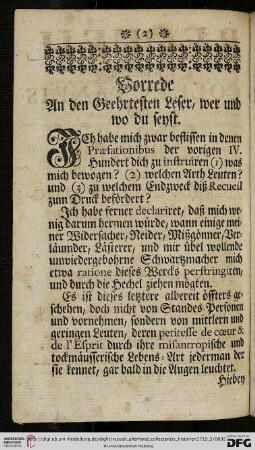 (2)
Vorrede
An den Geehrtesten Leser, wer und
wo du seyst.
ICh habe mich zwar beflissen in denen
Præfationibus der vorigen IV.
Hundert dich zu instruiren (1) was
mich bewogen? (2) welchen Arth Leuten?
und (3) zu welchem Endzweck diß Recueil
zum Druck befördert?
Ich habe ferner declariret, daß mich we-
nig darum hermen würde, wann einige mei-
ner Widersacher, Neider, Mißgönner, Ver-
läumder, Lästerer, und mir übel wollende
unwiedergebohrne Schwartzmacher mich
etwa ratione dieses Wercks perstringiren,
und durch die Hechel ziehen mögten.
Es ist dieses letztere albereit öffters ge-
schehen, doch nicht von Standes Personen
und vornehmen, sondern von mittlern und
geringen Leuten, deren petitesse de cœur &
de l'Esprit durch ihre misantropische und
tockmäusserische Lebens-Art jederman der
sie kennet, gar bald in die Augen leuchtet.
Hiebey
UNIVERSITÄTS-BIBLIOTHEK HEIDELBERG
DFG